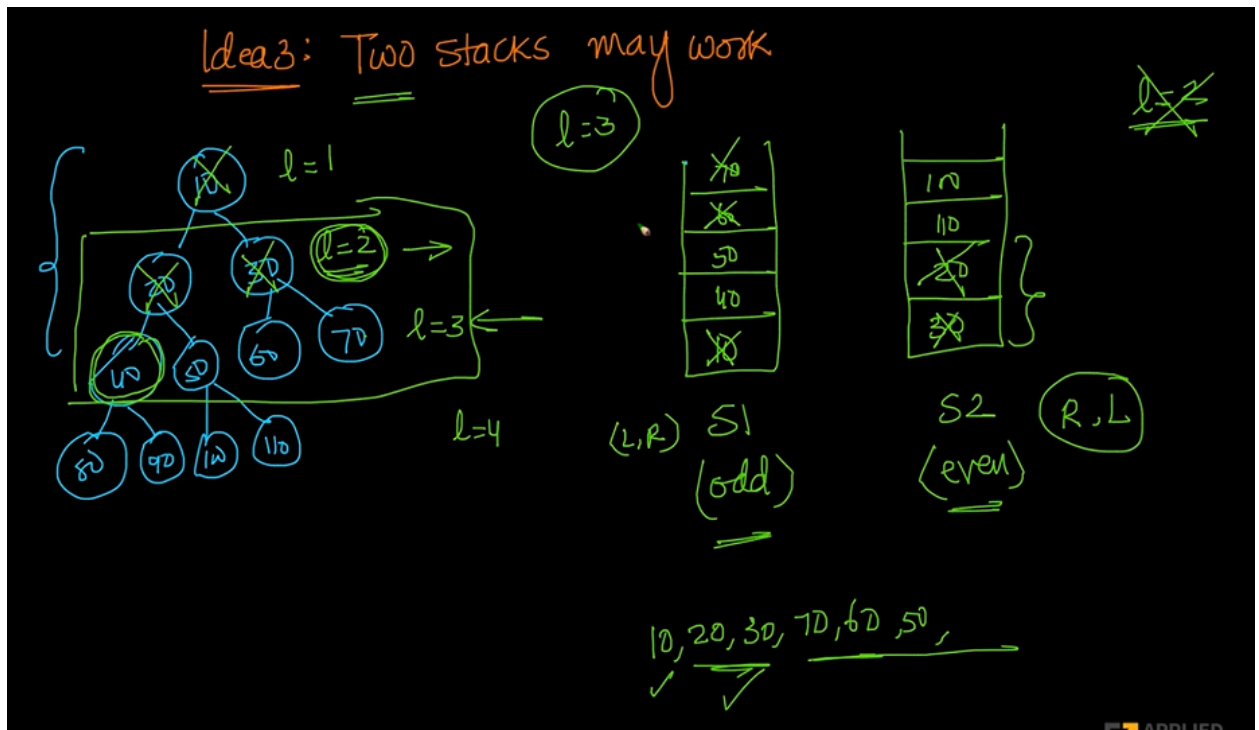 Idea3: Two stacks may work
l=2
l=3
10
l=1
20
30
l=2
40
50
60
70
l=3
80
90
100
110
l=4
70
60
50
40
10
100
110
20
30
(L,R)
S1
(odd)
S2
(even)
R,L
10, 20, 30, 70, 60, 50,
APPLIED